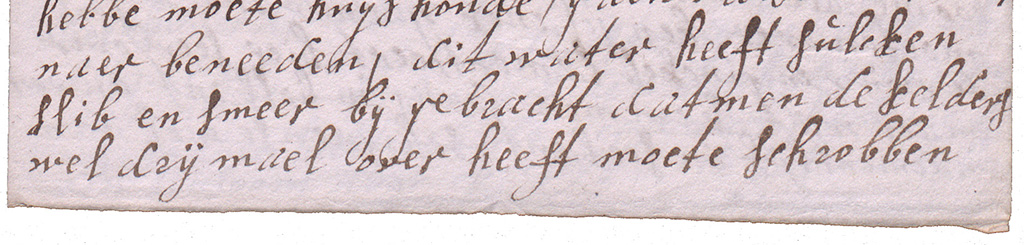 hebbe moete huijshonde,
naer beneeden, dit water heeft sulcken
slib en smeer bÿ gebracht datmen de kelders
wel drÿ mael over heeft moete schrobben